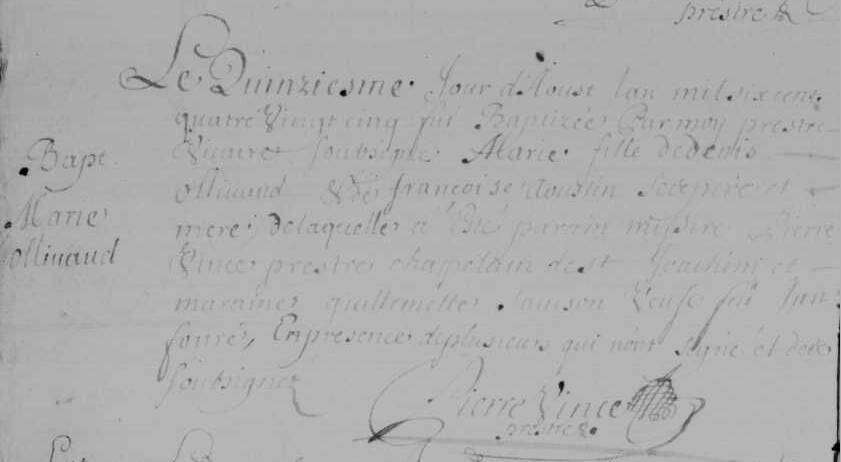 prestre
Le Quinziesme Jour d'Aoust lan mil six cens
quatre Vingt cinq fut Baptizée Par moy prestre
Vicaire soubsigné Marie fille de denis
ollivaud & de francoise Aoustin Ses pere et
mere, de laquelle a Esté parain missire Pierre
Vince prestre chapelain de st Joachim et
maraine guillemette Veufve feu Jan
fouré, En presence de plusieurs qui n'ont signé et des
soubsignez
Bapt
Marie
ollivaud
Pierre Vince
prestre